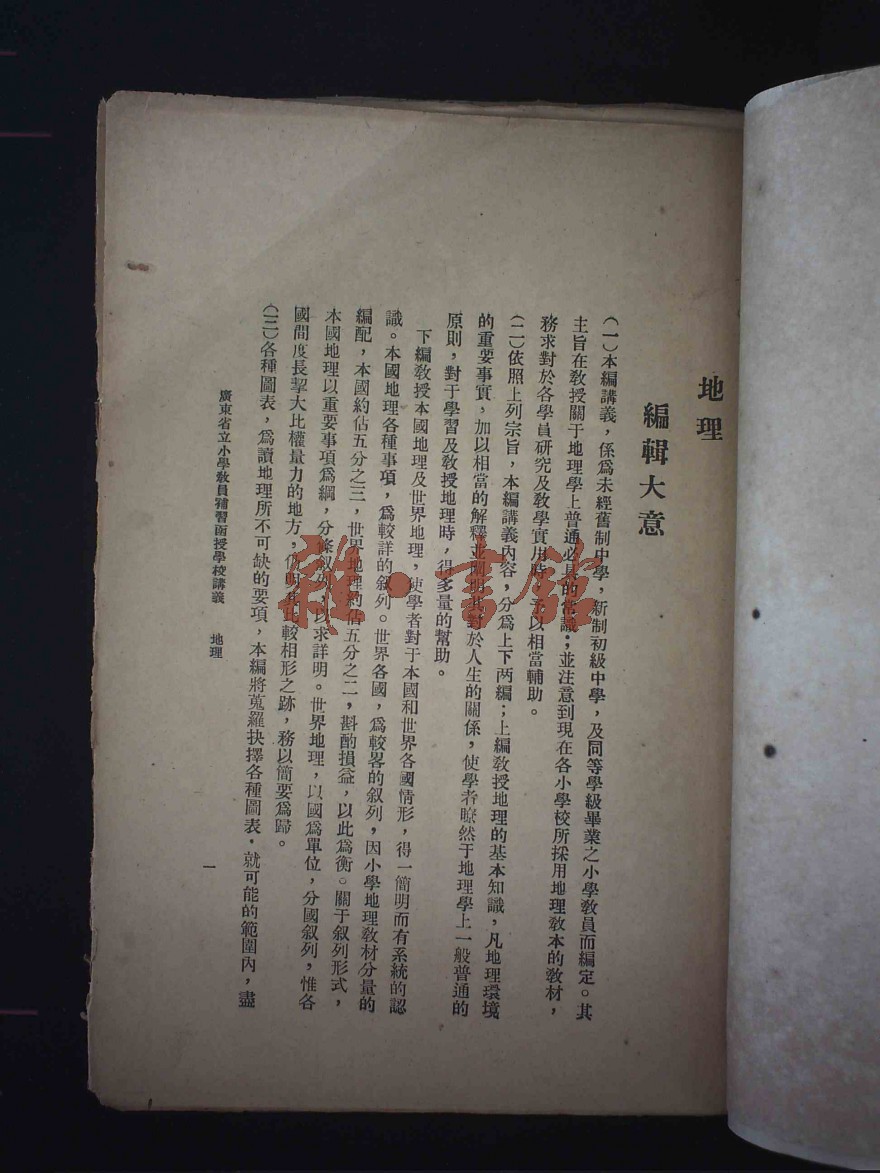 地理
編輯大意
(一)本編講義，係爲未經舊制中學，新制初級中學，及同等學級畢業之小學教員而編定。其
主旨在教授關于地理學上普通必具的常識；並注意到現在各小學校所採用地理教本的教材，
務求對於各學員研究及教學實用時，予以相當輔助。
(二)依照上列宗旨，本編講義內容，分爲上下两編；上編教授地理的基本知識，凡地理環境
的重要事實，加以相當的解釋並闡明其對於人生的關係，使學者瞭然于地理學上一般普通的
原則，對于學習及教授地理時，得多量的幫助。
下編教授本國地理及世界地理，使學者對于本國和世界各國情形，得一簡明而有系統的認
識。本國地理各種事項，爲較詳的叙列。世界各國，爲較畧的叙列，因小學地理教材分量的
編配，本國約佔五分之三，世界地理約佔五分之二，斟酌損益，以此爲衡。關于叙列形式，
本國地理以重要事項爲綱，分條叙列，以求詳明。世界地理，以國爲單位，分國叙列，惟各
國間度長挈大比權量力的地方，仍明其比較相形之跡，務以簡要爲歸。
(三)各種圖表，爲讀地理所不可缺的要項，本編將蒐羅抉擇各種圖表，就可能的範圍內，盡
廣東省立小學教員補習函授學校講義 地理
一
雜·書館